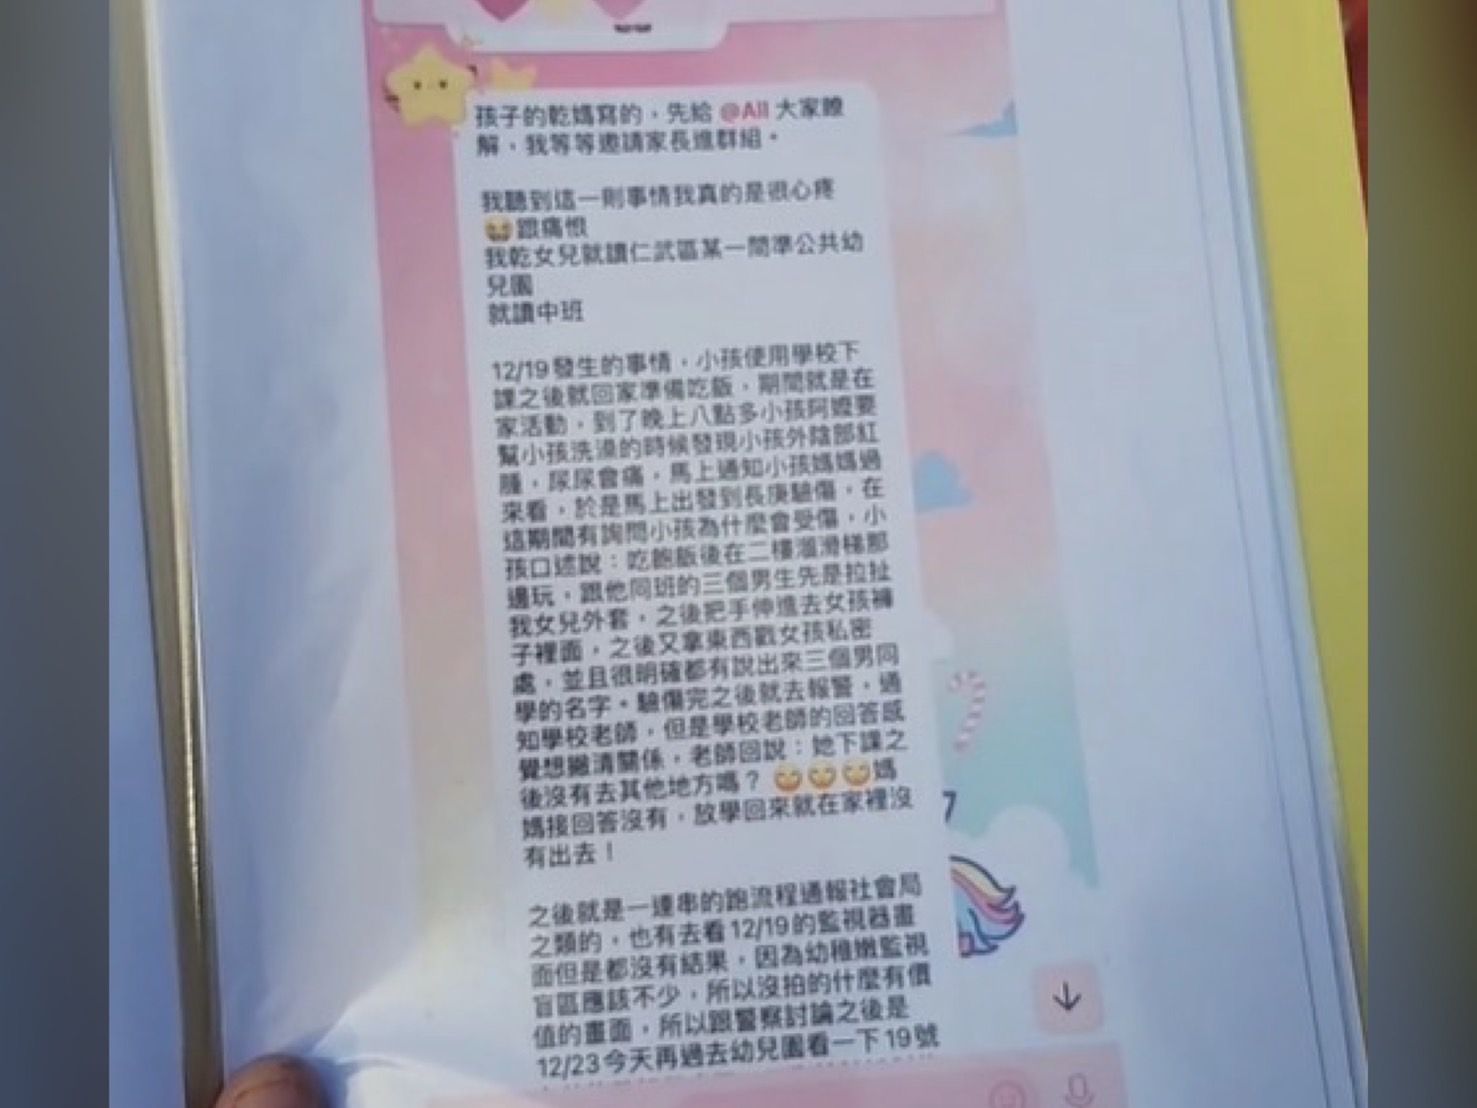 孩子的乾媽寫的，先給 @All 大家瞭
解，我等等邀請家長進群組。
我聽到這一則事情我真的是很心疼
跟痛恨
我乾女兒就讀仁武區某一間準公共幼
兒園
就讀中班
12/19發生的事情，小孩使用學校下
課之後就回家準備吃飯，期間就是在
家活動，到了晚上八點多小孩阿嬤要
幫小孩洗澡的時候發現小孩外陰部紅
腫，尿尿會痛，馬上通知小孩媽媽過
來看，於是馬上出發到長庚驗傷，在
這期間有詢問小孩為什麼會受傷，小
孩口述說：吃飽飯後在二樓溜滑梯那
邊玩，跟他同班的三個男生先是拉扯
我女兒外套，之後把手伸進去女孩褲
子裡面，之後又拿東西戳女孩私密
處，並且很明確都有說出來三個男同
學的名字。驗傷完之後就去報警，通
知學校老師，但是學校老師的回答感
覺想撇清關係，老師回說：她下課之
後沒有去其他地方嗎？媽
媽接回答沒有，放學回來就在家裡沒
有出去！
之後就是一連串的跑流程通報社會局
之類的，也有去看12/19的監視器畫
面但是都沒有結果，因為幼稚嫩監視
盲區應該不少，所以沒拍的什麼有價
值的畫面，所以跟警察討論之後是
12/23今天再過去幼兒園看一下19號